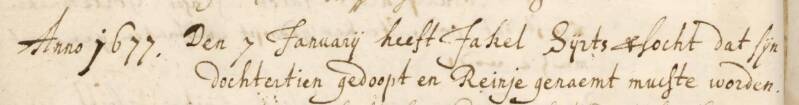 Anno 1677. Den 7 January heeft Jakel Sÿrts besocht dat sÿn
dochtertien gedoopt en Reinje genaemt muchte worden.